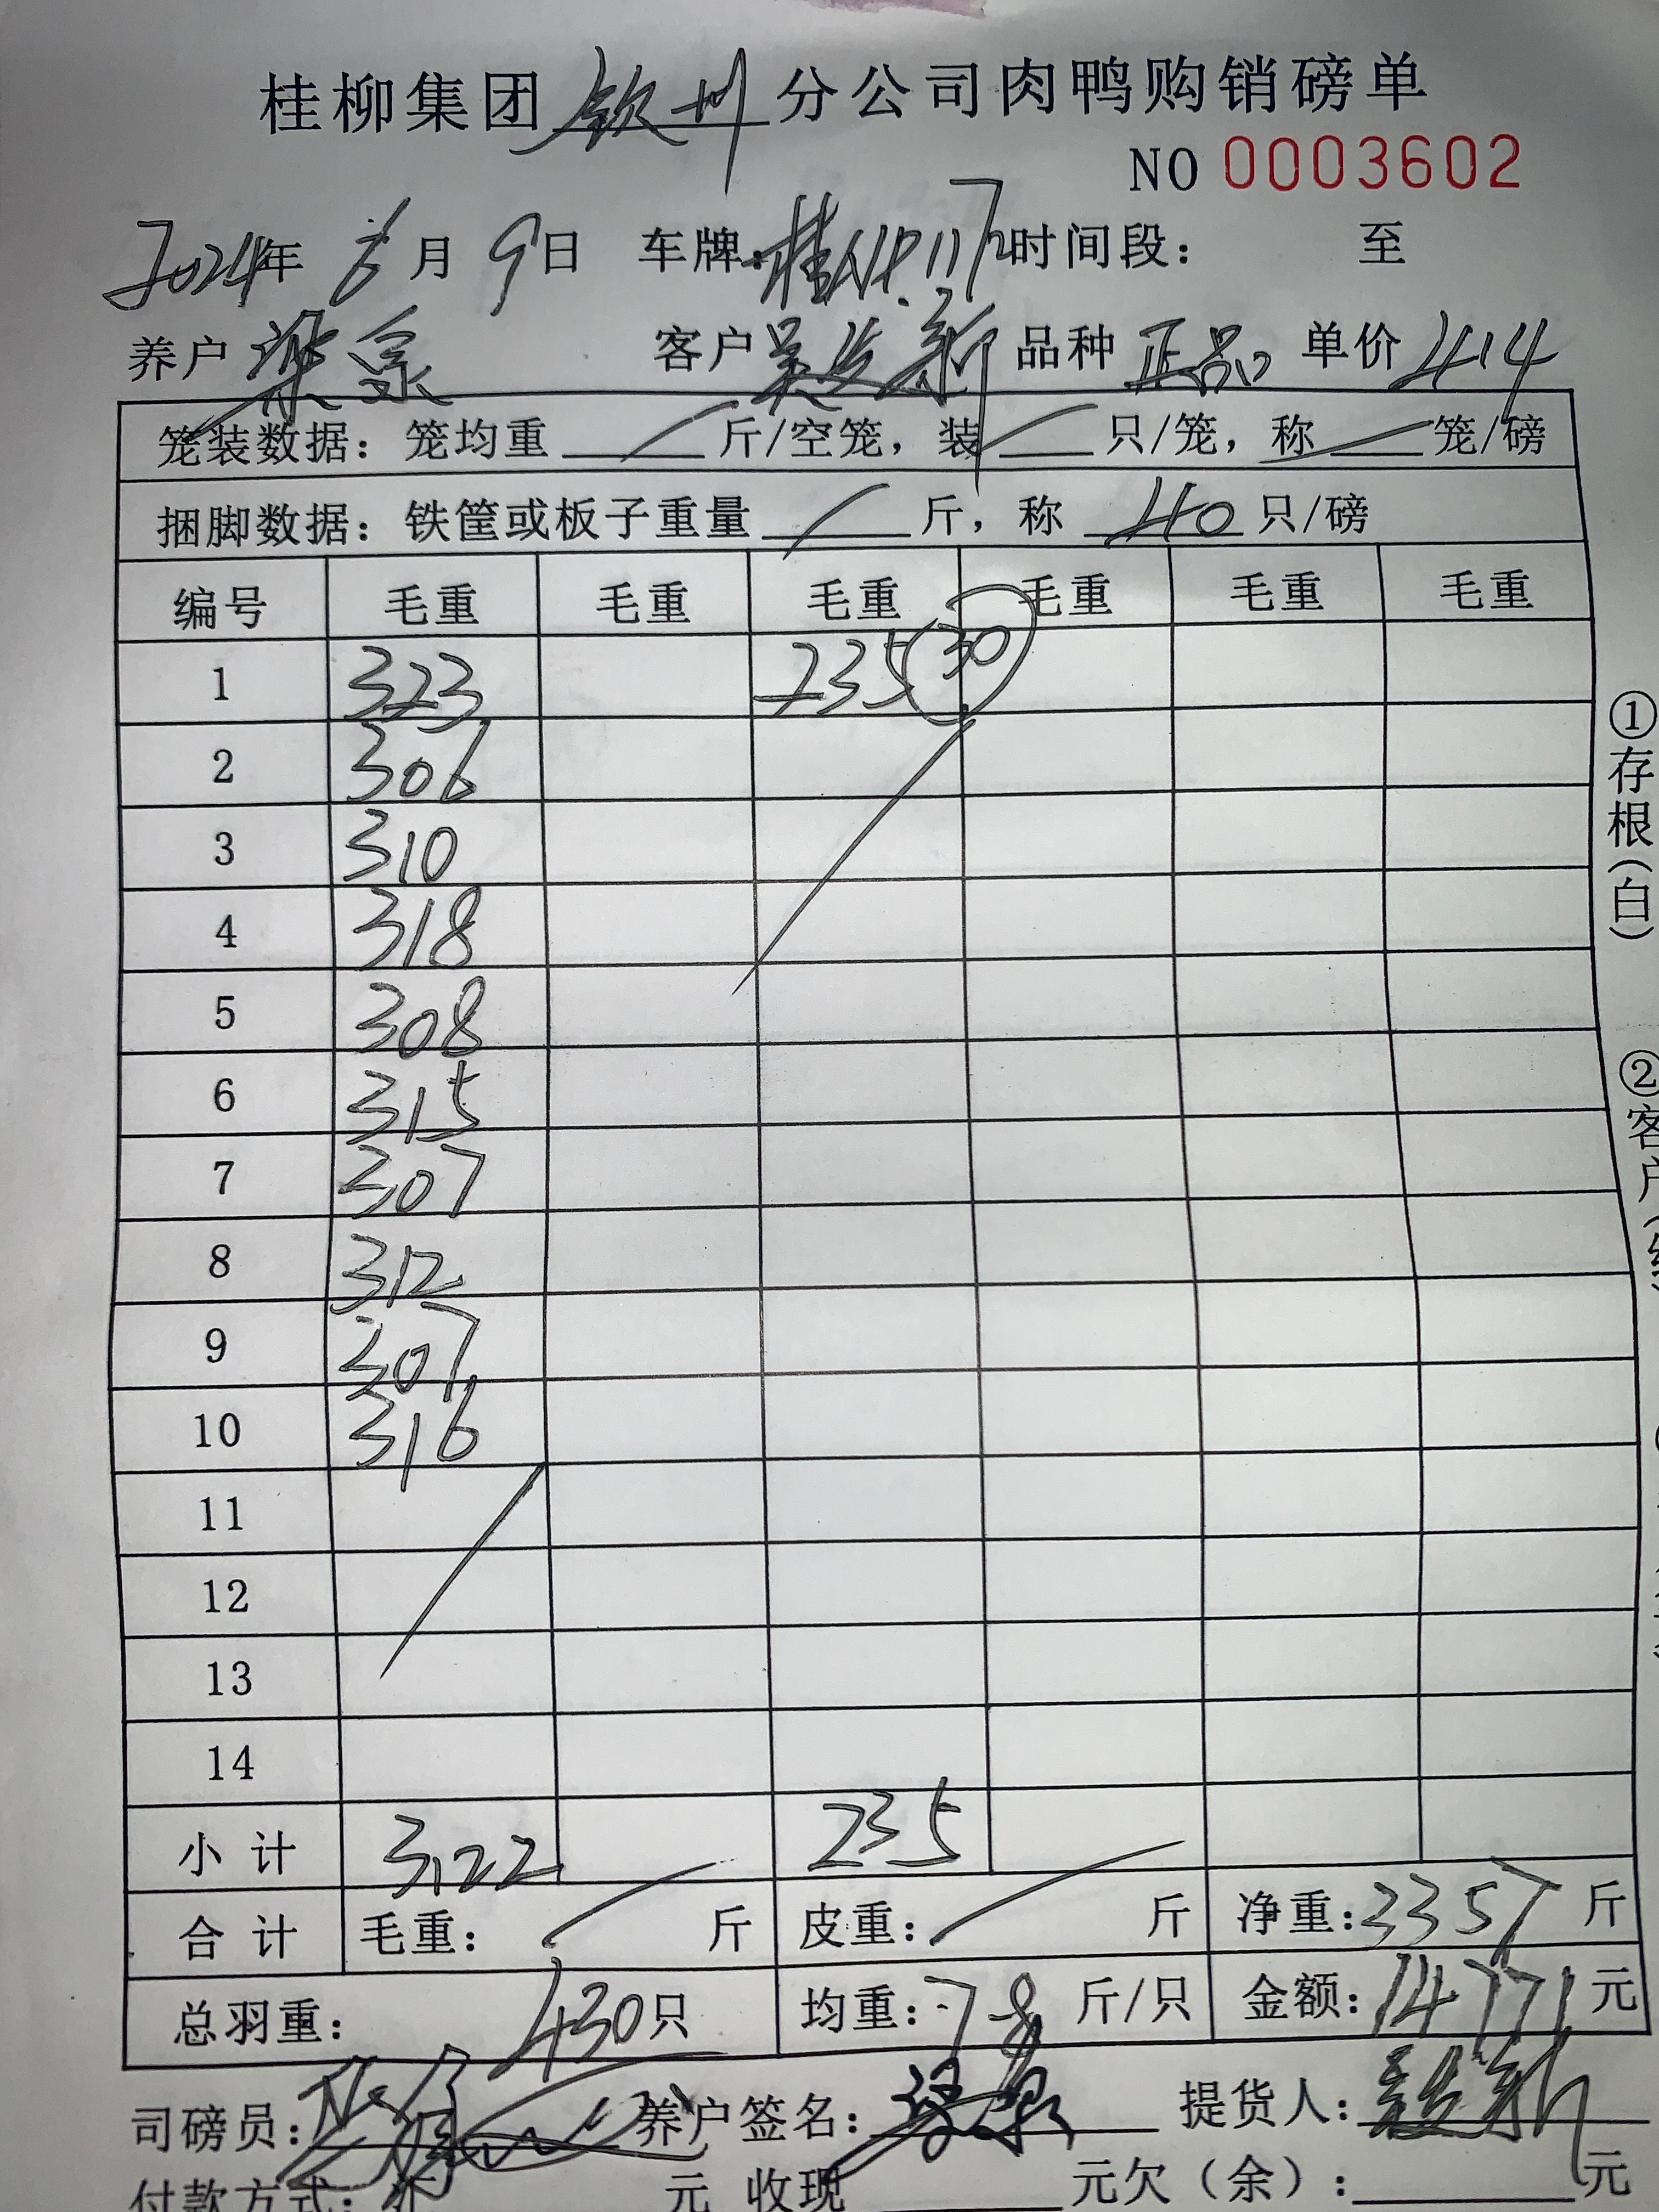 桂柳集团钦州分公司肉鸭购销磅单
NO 0003602
2024年 8月 9日 车牌: 时间段: 至
养户 梁泉 客户 吴发新 品种 正品 单价 4.4
笼装数据: 笼均重 斤/空笼, 装 只/笼, 称 笼/磅
捆脚数据: 铁筐或板子重量 斤, 称 40 只/磅
编号 毛重 毛重 毛重 毛重 毛重 毛重
1 323 235 (30)
2 306
3 310
4 318
5 308
6 315
7 307
8 312
9 307
10 316
11
12
13
14
小计 3122 235
合计 毛重: 斤 皮重: 斤 净重: 3357 斤
总羽重: 430只 均重: 7.8 斤/只 金额: 14771 元
司磅员: 养户签名: 梁泉 提货人: 吴发新
付款方式: 汇 元 收现 元欠(余): 元
①存根(白)
②客户(红